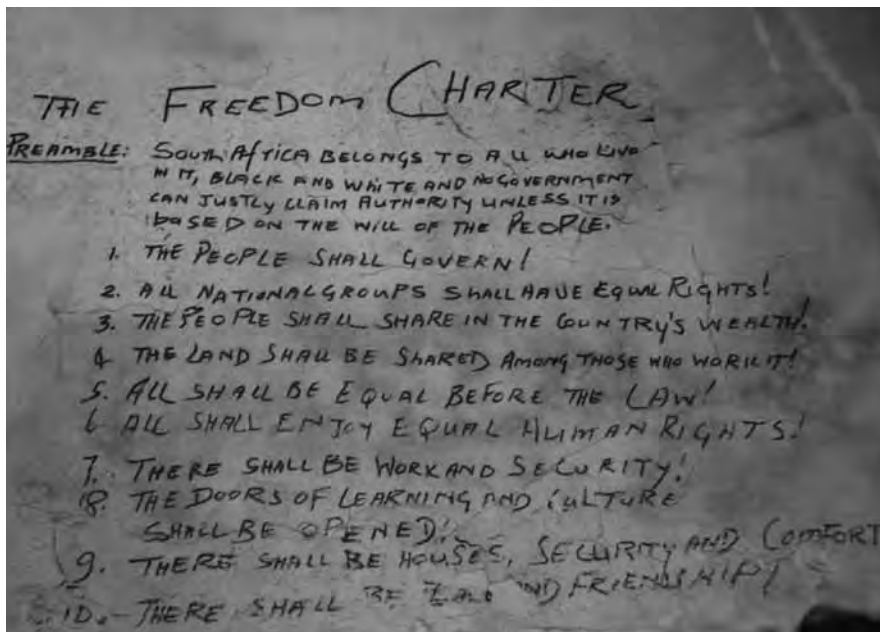 THE FREEDOM CHARTER
PREAMBLE: SOUTH AFRICA BELONGS TO ALL WHO LIVE
IN IT, BLACK AND WHITE AND NO GOVERNMENT
CAN JUSTLY CLAIM AUTHORITY UNLESS IT IS
baSED ON THE WILL OF THE PEOPLE.
1. THE PEOPLE SHALL GOVERN!
2. ALL NATIONAL GROUPS SHALL HAVE EQUAL RIGHTS!
3. THE PEOPLE SHALL SHARE IN THE COUNTRY'S WEALTH!
4 THE LAND SHALL BE SHARED AMONG THOSE WHO WORK IT!
5. ALL SHALL BE EQUAL BEFORE THE LAW!
6 ALL SHALL ENJOY EQUAL HUMAN RIGHTS!
7. THERE SHALL BE WORK AND SECURITY!
8. THE DOORS OF LEARNING AND CULTURE
SHALL BE OPENED!
9. THERE SHALL BE HOUSES, SECURITY AND COMFORT
10. THERE SHALL BE AND FRIENDSHIP!